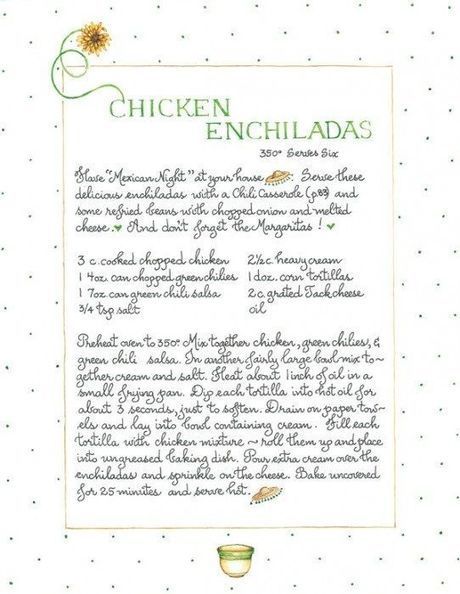 CHICKEN
ENCHILADAS
350° Serves Six
Have "Mexican Night" at your house Serve these
delicious enchiladas with a Chili Casserole (p.83) and
some refried beans with chopped onion and melted
cheese. And don't forget the Margaritas!
3 c. cooked chopped chicken
1 4oz. can chopped green chilies
1 7oz. can green chili salsa
3/4 tsp salt
2½ c. heavy cream
1 doz. corn tortillas
2 c. grated Jack cheese
oil
Preheat oven to 350° Mix together chicken, green chilies, &
green chili salsa. In another fairly large bowl mix to~
gether cream and salt. Heat about 1 inch of oil in a
small frying pan. Dip each tortilla into hot oil for
about 3 seconds, just to soften. Drain on paper tow~
els and lay into bowl containing cream. Fill each
tortilla with chicken mixture ~ roll them up and place
into ungreased baking dish. Pour extra cream over the
enchiladas and sprinkle on the cheese. Bake uncovered
for 25 minutes and serve hot.